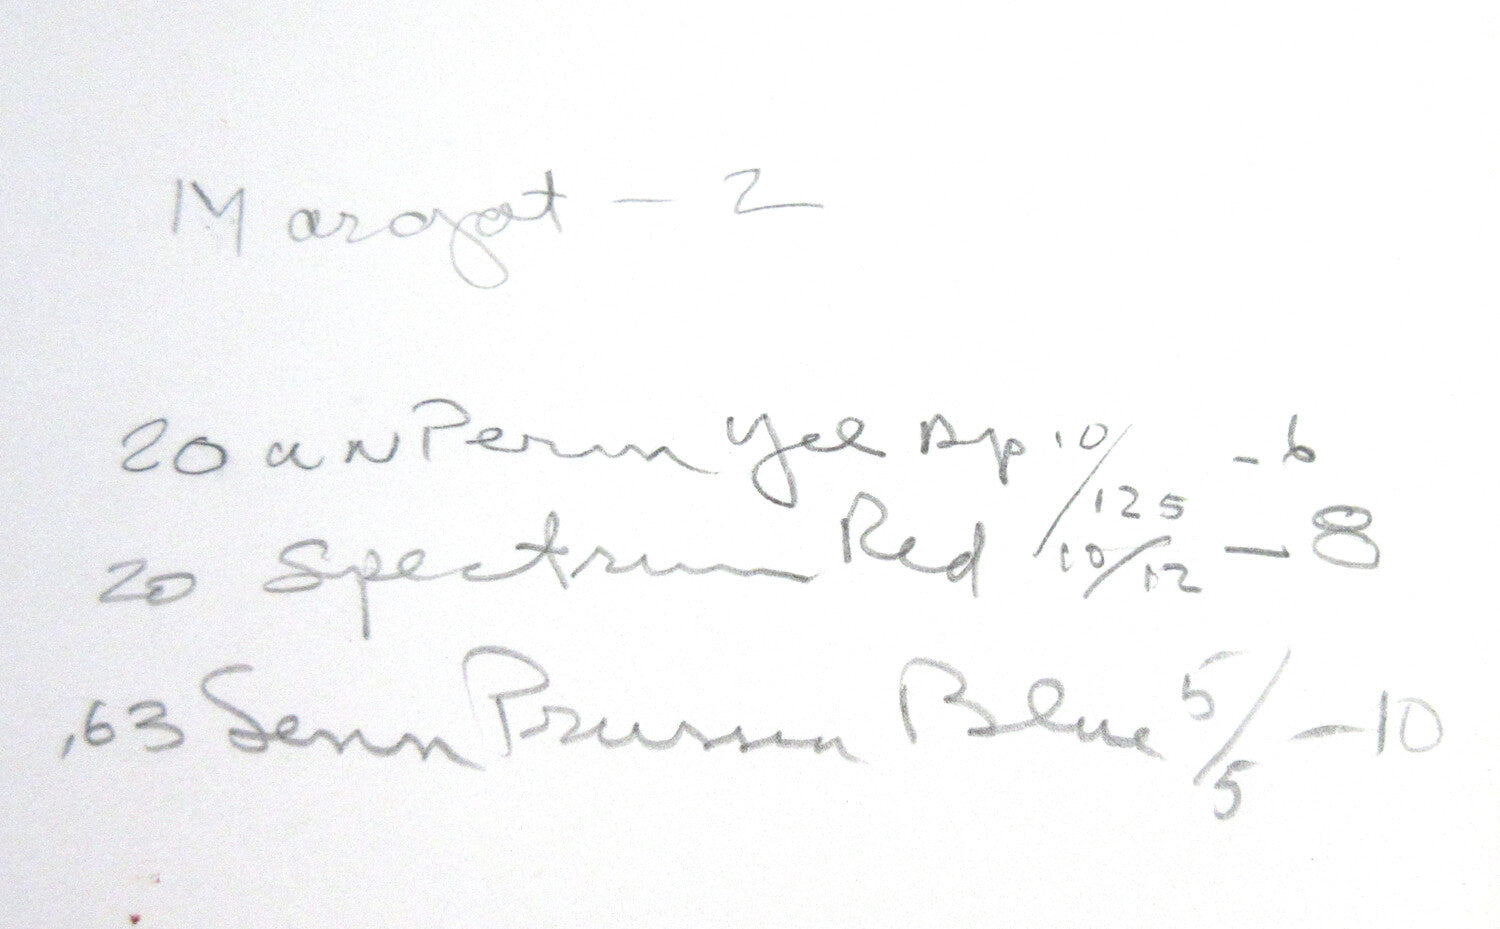 Margat - 2
20 WN Perm Yel Dp 10/125 - 6
20 Spectrum Red 10/12 - 8
.63 Senn Prussn Blue 5/5 - 10